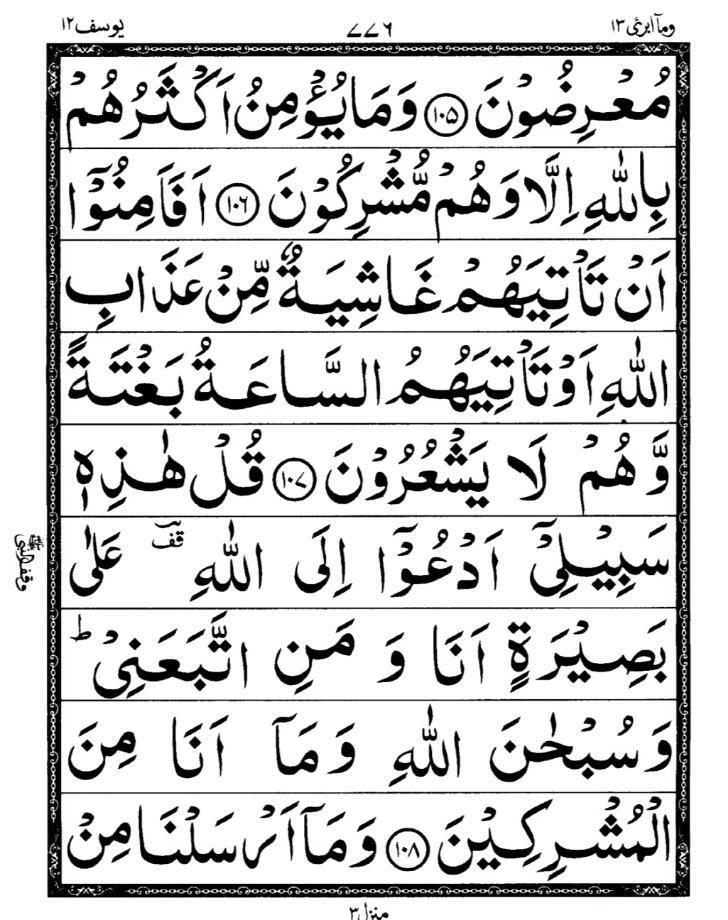 وما ابرئ ١٣
٧٧٦
يوسف ١٢
مُعْرِضُوْنَ ﴿١٠٥﴾ وَمَا يُؤْمِنُ اَكْثَرُهُمْ
بِاللّٰهِ اِلَّا وَهُمْ مُّشْرِكُوْنَ ﴿١٠٦﴾ اَفَاَمِنُوْٓا
اَنْ تَاْتِيَهُمْ غَاشِيَةٌ مِّنْ عَذَابِ
اللّٰهِ اَوْ تَاْتِيَهُمُ السَّاعَةُ بَغْتَةً
وَّهُمْ لَا يَشْعُرُوْنَ ﴿١٠٧﴾ قُلْ هٰذِهٖ
سَبِيْلِيْٓ اَدْعُوْٓا اِلَى اللّٰهِ ؔقف عَلٰى
بَصِيْرَةٍ اَنَا وَ مَنِ اتَّبَعَنِيْ ؕ
وَ سُبْحٰنَ اللّٰهِ وَ مَآ اَنَا مِنَ
الْمُشْرِكِيْنَ ﴿١٠٨﴾ وَمَآ اَرْسَلْنَا مِنْ
وقف النبی ﷺ
منزل ٣